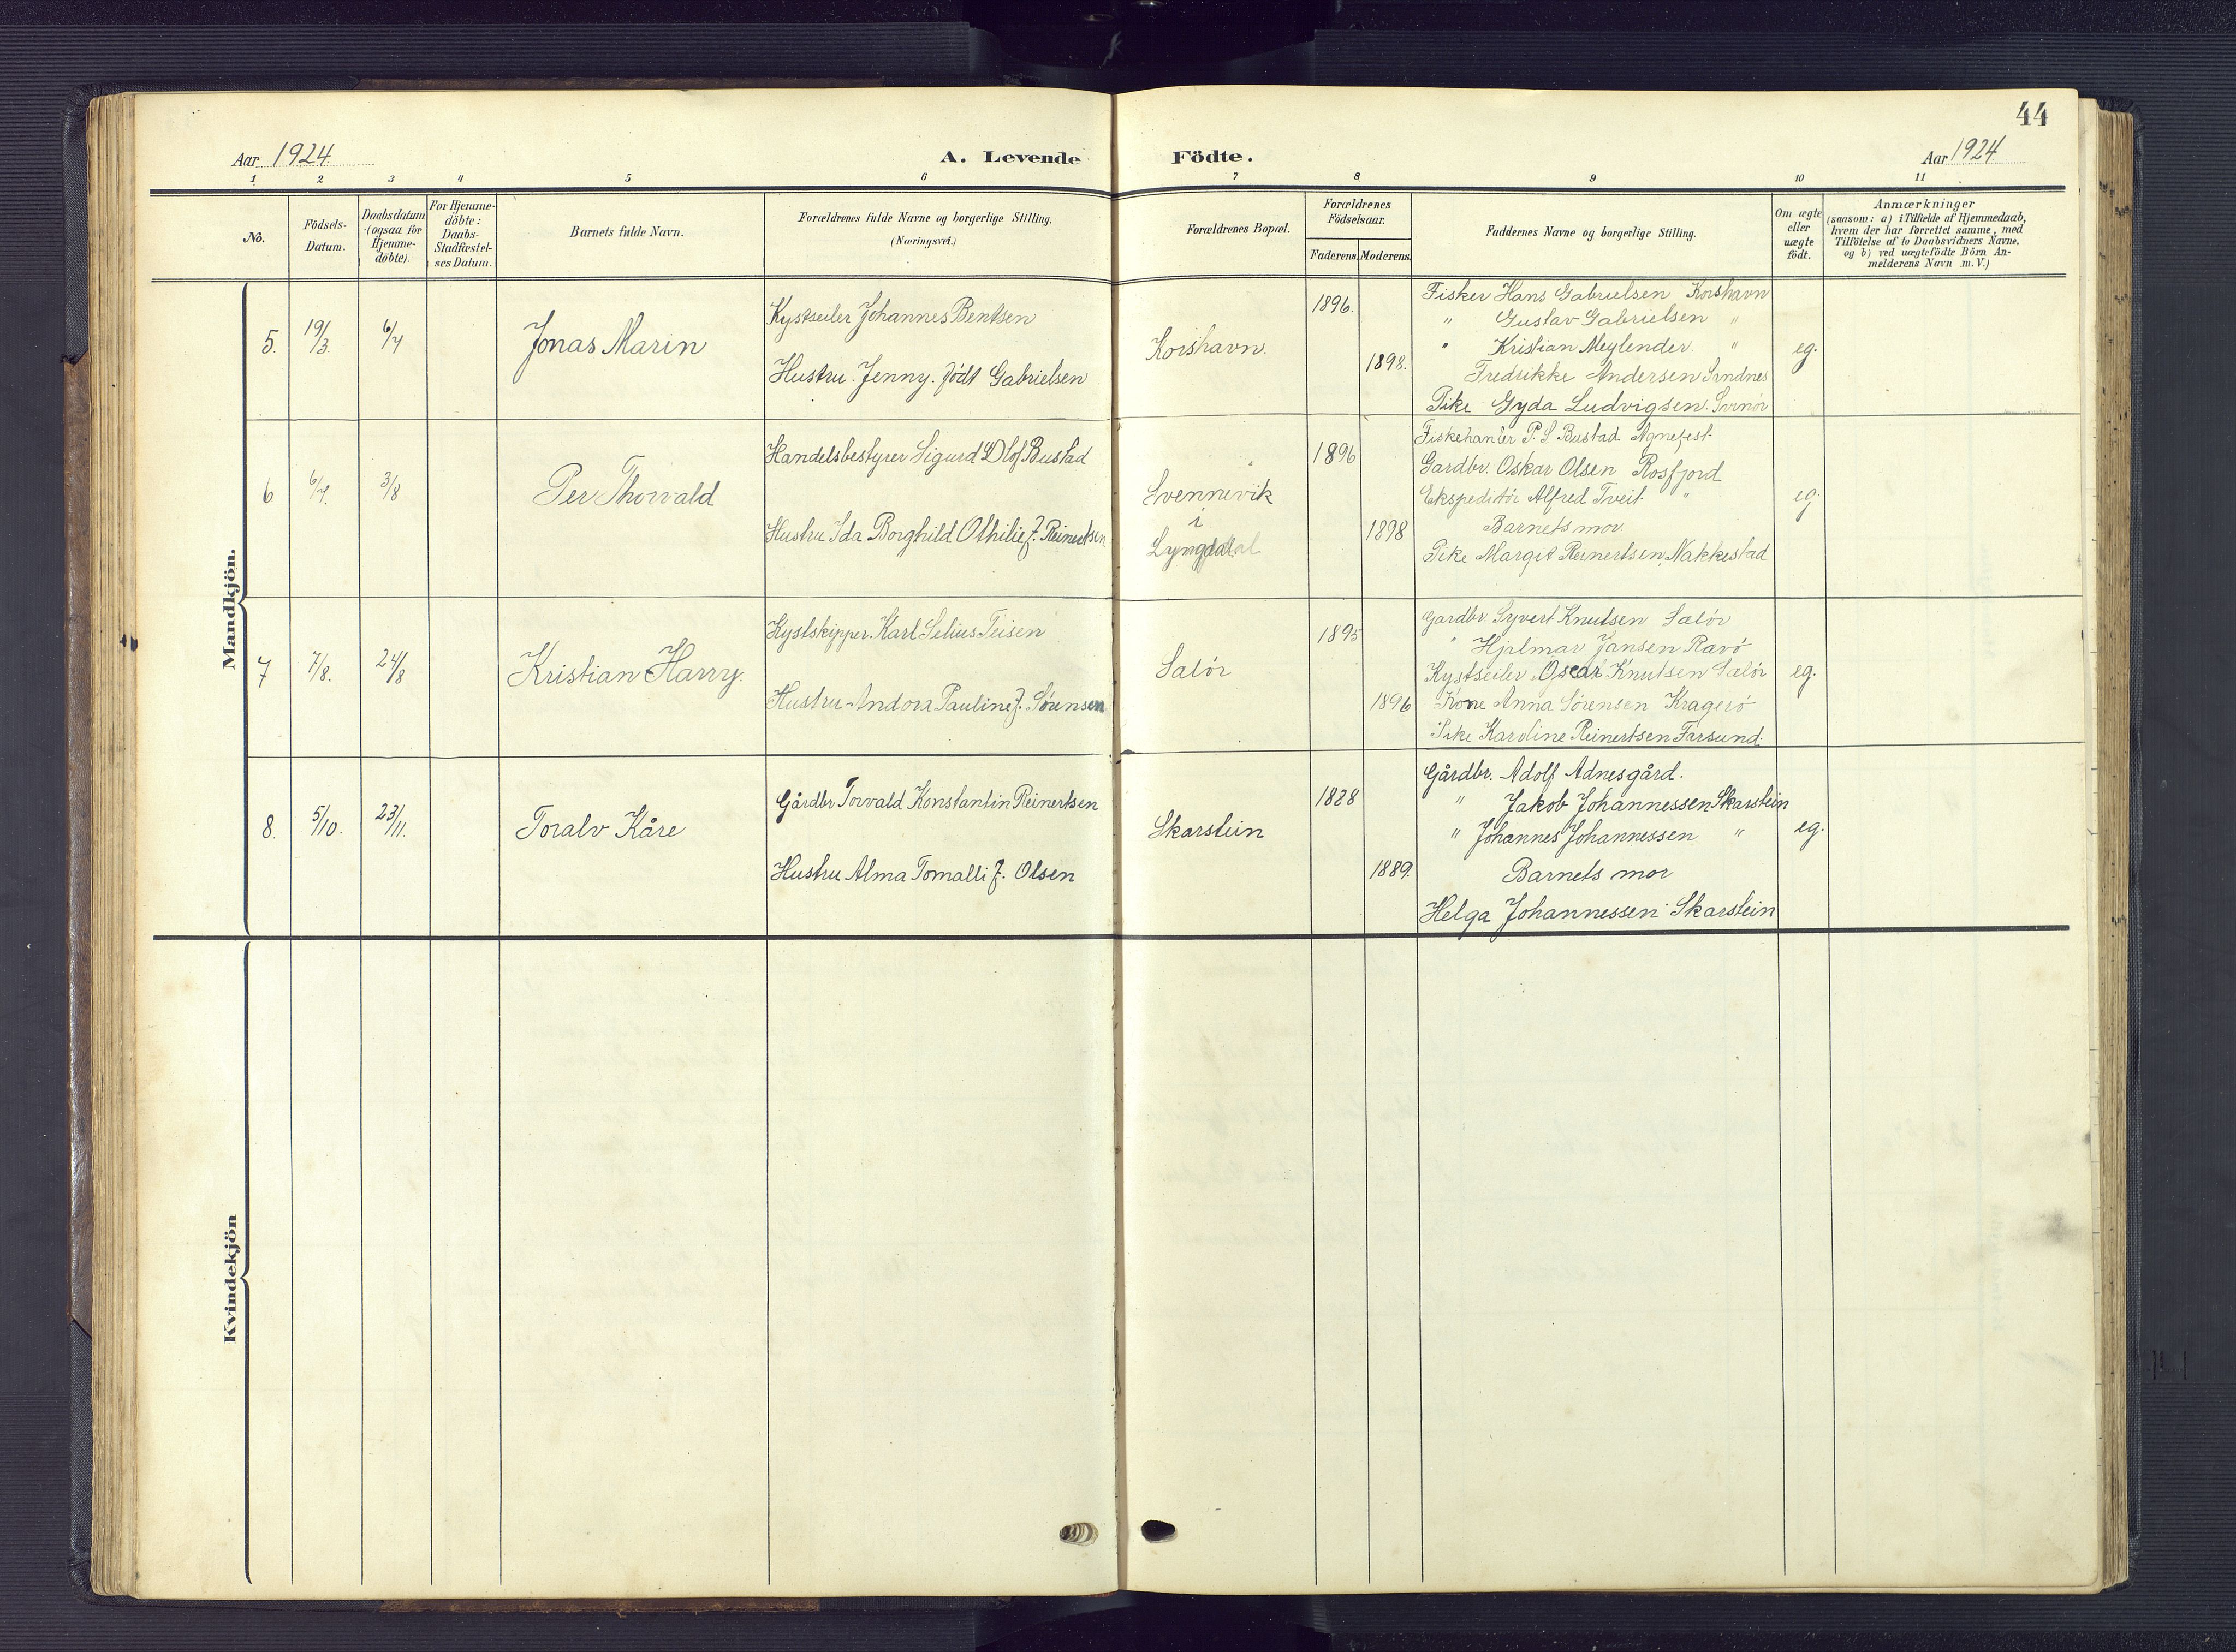 44
Aar 1924
A. Levende Födte.
Aar 1924
1 2 3 4 5 6 7 8 9 10 11
No.
Födsels-
Datum.
Daabsdatum
(ogsaa for
Hjemme-
döbte).
For Hjemme-
döbte:
Daabs-
Stadfæstel-
ses Datum.
Barnets fulde Navn.
Forældrenes fulde Navne og borgerlige Stilling.
(Næringsvei.)
Forældrenes Bopæl.
Forældrenes
Födselsaar.
Faderens. Moderens.
Faddernes Navne og borgerlige Stilling.
Om ægte
eller
uægte
födt.
Anmærkninger
(saasom: a) i Tilfælde af Hjemmedaab,
hvem der har forrettet samme, med
Tilföielse af to Daabsvidners Navne,
og b) ved uægtefödte Börn An-
melderens Navn m. V.)
Mandkjön.
5.
19/3.
6/4
Jonas Marin
Kystseiler Johannes Bentsen
Hustru. Jenny. født Gabrielsen
Korshavn.
1896.
1898.
Fisker Hans Gabrielsen Korshavn
" Gustav Gabrielsen "
" Kristian Meylender. "
Fredrikke Andersen
Pike Gyda Ludvigsen. Svinør
eg.
6
6/7.
3/8
Per Thorvald
Handelsbestyrer Sigurd Olof Bustad
Hustru Ida Borghild Othilie f. Reinertsen
Svennevik
i
Lyngdal
1896
1898
Fiskehanler P. S. Bustad Agnefest.
Gardbr. Oskar Olsen Rosfjord
Ekspeditør Alfred Tveit. "
Barnets mor.
Pike Margit Reinertsen, Nakkestad
eg.
7
7/8.
24/8
Kristian Harry.
Kystskipper. Karl Selius Teisen
Hustru Andora Pauline f. Sørensen
Salør
1895
1896
Gardbr. Syvert Knutsen Salør
" Hjalmar Jansen Ravø
Kystseiler Oscar Knutsen Salør
Kone Anna Sørensen Kragerø
Pike Karoline Reinertsen Farsund.
eg.
8.
5/10.
23/11.
Toralv Kåre
Gårdbr Torvald Konstantin Reinertsen
Hustru Alma Tomalli f. Olsen
Skarstein
1828
1889.
Gårdbr. Adolf Adnesgård.
" Jakob Johannessen Skarstein
" Johannes Johannessen "
Barnets mor
Helga Johannessen Skarstein
eg.
Kvindekjön